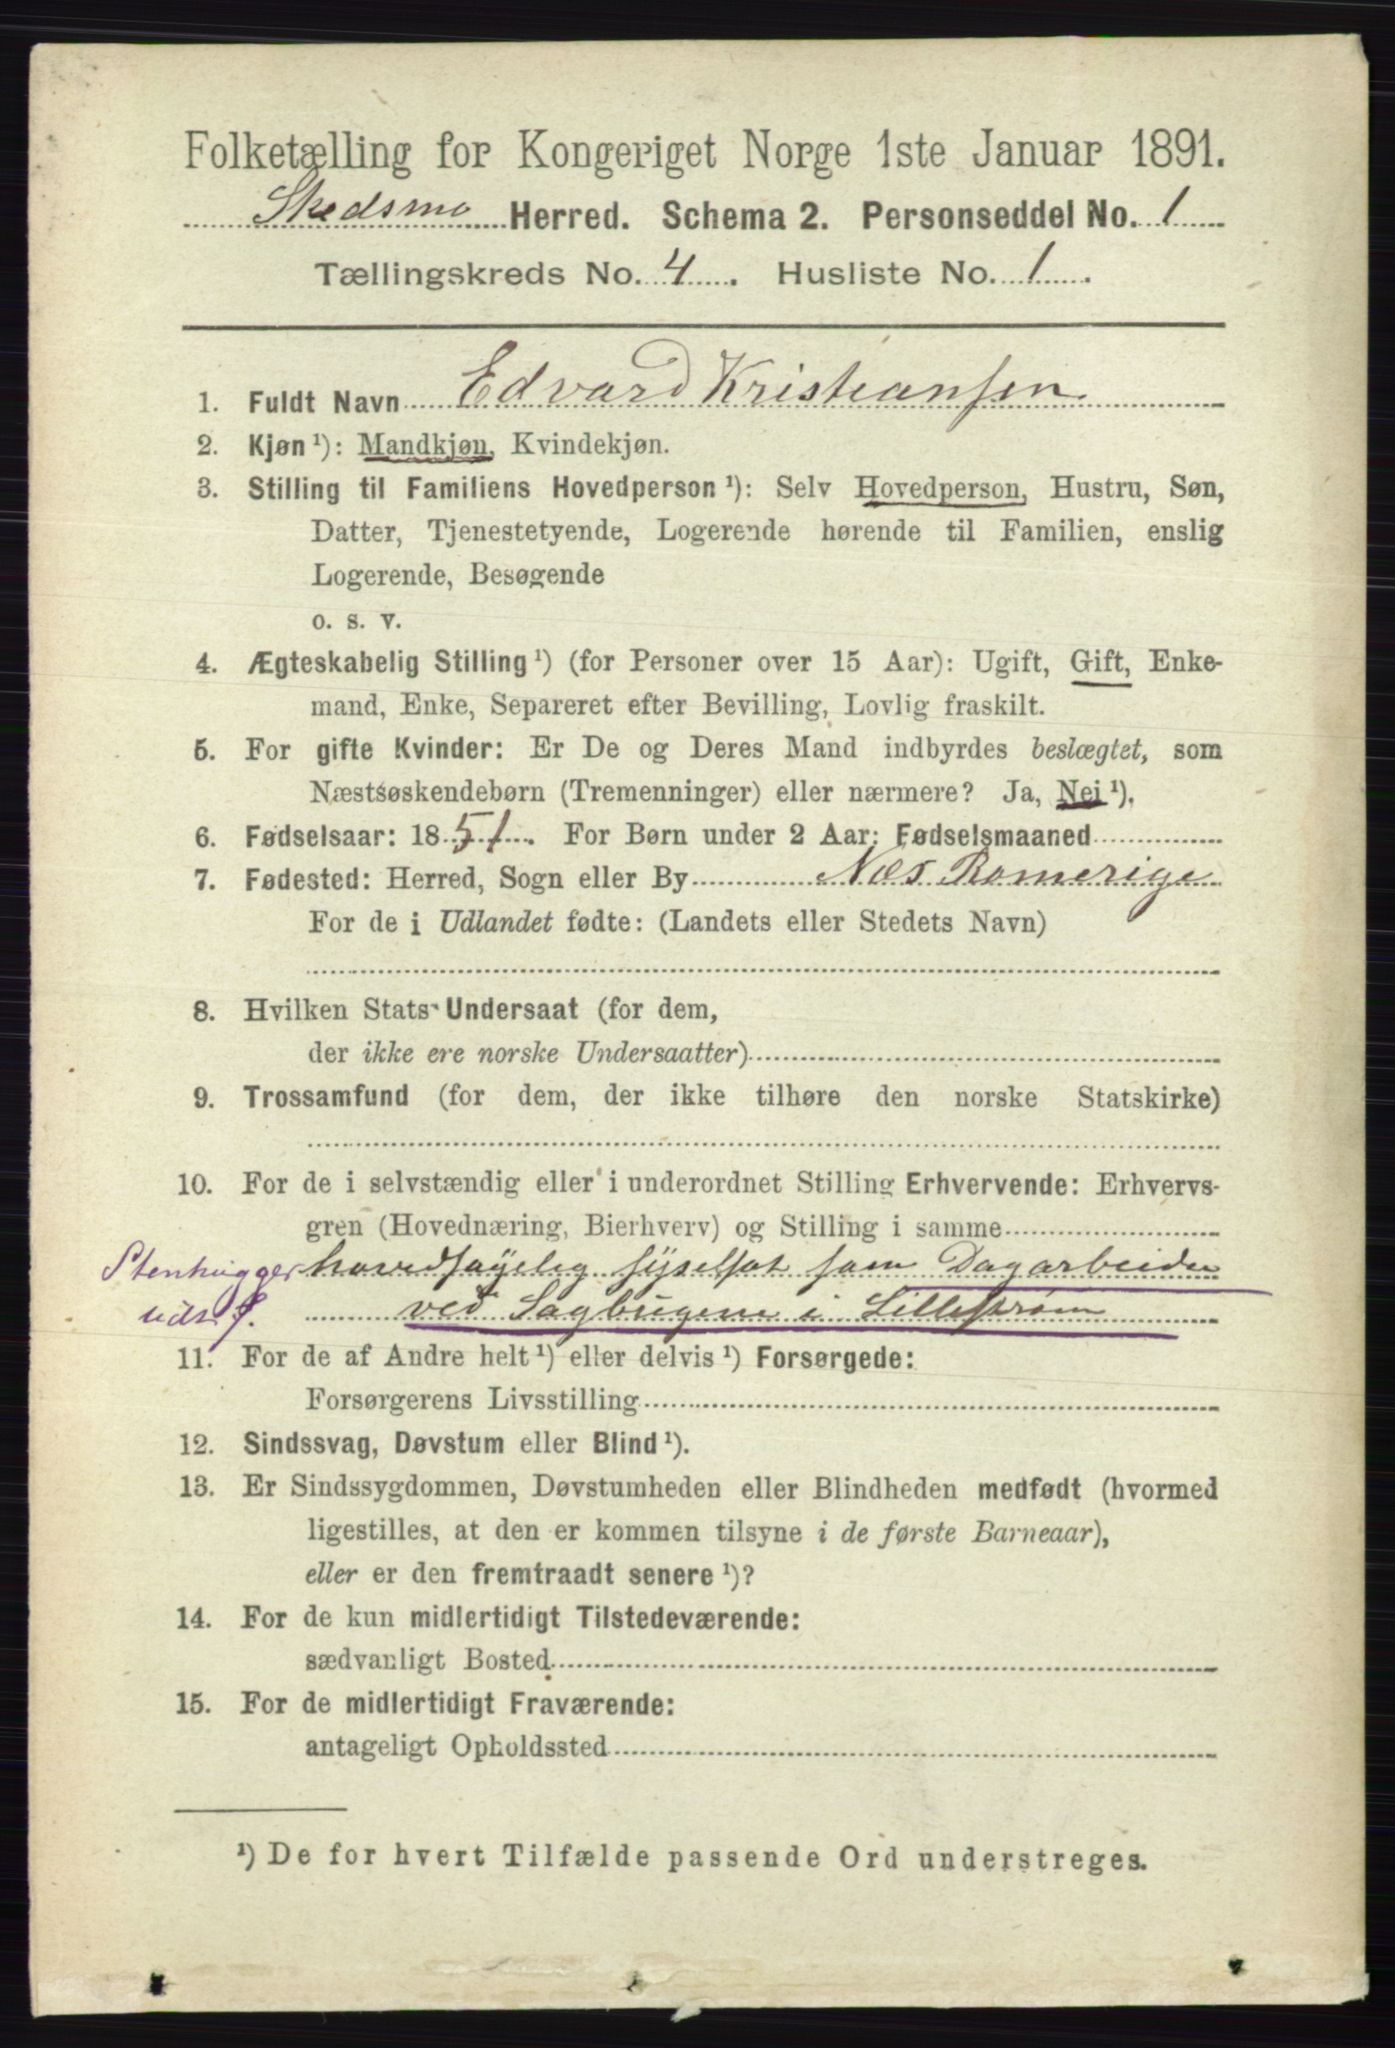 Folketælling for Kongeriget Norge 1ste Januar 1891.
Skedsmo Herred. Schema 2. Personseddel No. 1
Tællingskreds No. 4. Husliste No. 1.
1. Fuldt Navn Edvard Kristiansen
2. Kjøn ¹): Mandkjøn, Kvindekjøn.
3. Stilling til Familiens Hovedperson ¹): Selv Hovedperson, Hustru, Søn,
Datter, Tjenestetyende, Logerende hørende til Familien, enslig
Logerende, Besøgende
o. s. v.
4. Ægteskabelig Stilling ¹) (for Personer over 15 Aar): Ugift, Gift, Enke-
mand, Enke, Separeret efter Bevilling, Lovlig fraskilt.
5. For gifte Kvinder: Er De og Deres Mand indbyrdes beslægtet, som
Næstsøskendebørn (Tremenninger) eller nærmere? Ja, Nei ¹).
6. Fødselsaar: 1851. For Børn under 2 Aar: Fødselsmaaned
7. Fødested: Herred, Sogn eller By Næs Romerige
For de i Udlandet fødte: (Landets eller Stedets Navn)
8. Hvilken Stats Undersaat (for dem,
der ikke ere norske Undersaatter)
9. Trossamfund (for dem, der ikke tilhøre den norske Statskirke)
10. For de i selvstændig eller i underordnet Stilling Erhvervende: Erhvervs-
gren (Hovednæring, Bierhverv) og Stilling i samme
Stenhugger hovedsagelig sysselsat som Dagarbeider
ved Sagbrugene i Lillestrøm
11. For de af Andre helt ¹) eller delvis ¹) Forsørgede:
Forsørgerens Livsstilling
12. Sindssvag, Døvstum eller Blind ¹).
13. Er Sindssygdommen, Døvstumheden eller Blindheden medfødt (hvormed
ligestilles, at den er kommen tilsyne i de første Barneaar),
eller er den fremtraadt senere ¹)?
14. For de kun midlertidigt Tilstedeværende:
sædvanligt Bosted
15. For de midlertidigt Fraværende:
antageligt Opholdssted
¹) De for hvert Tilfælde passende Ord understreges.